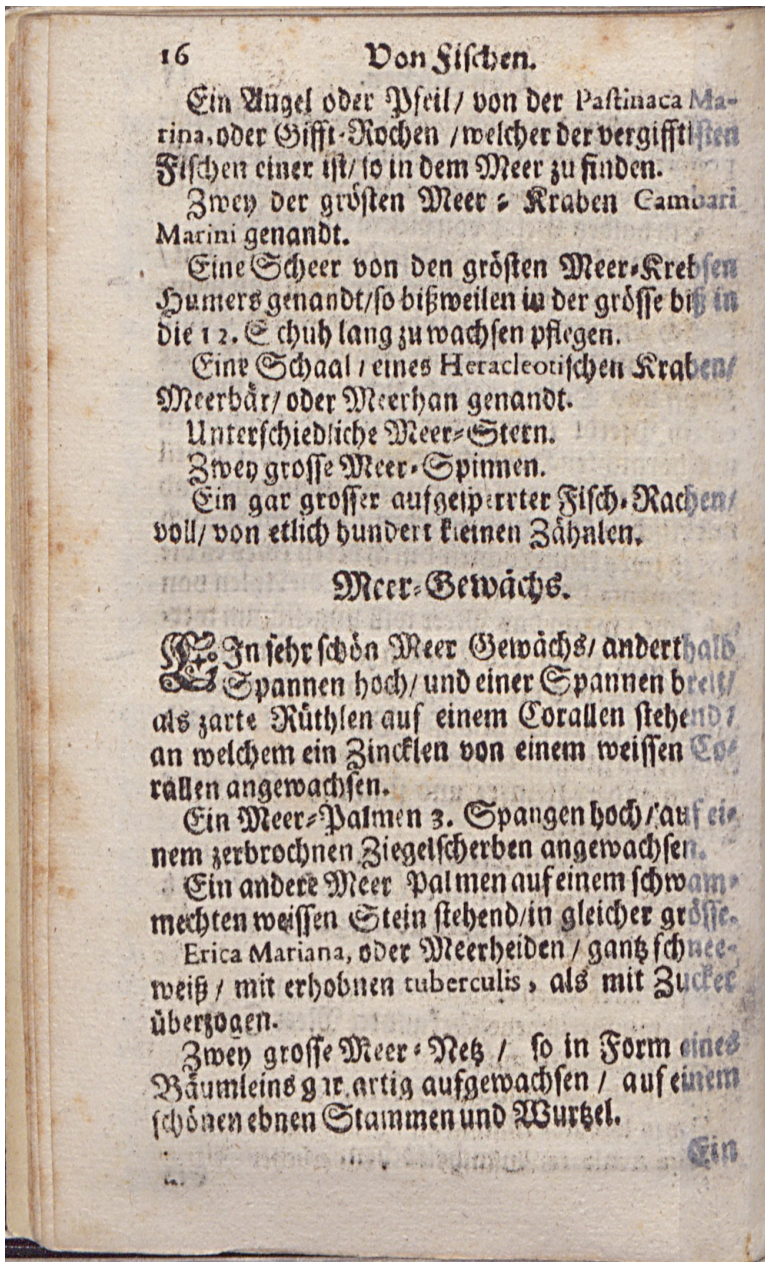 16 Von Fischen.
Ein Angel oder Pfeil/ von der Pastinaca Ma-
rina, oder Gifft-Rochen / welcher der vergifftisten
Fischen einer ist/ so in dem Meer zu finden.
Zwey der grösten Meer-Kraben Cambari
Marini genandt.
Eine Scheer von den grösten Meer-Krebsen
Humers genandt/ so bißweilen in der grösse biß in
die 12. Schuh lang zu wachsen pflegen.
Eine Schaal / eines Heracleotischen Kraben/
Meerbär/ oder Meerhan genandt.
Unterschiedliche Meer-Stern.
Zwey grosse Meer-Spinnen.
Ein gar grosser aufgesperrter Fisch-Rachen/
voll/ von etlich hundert kleinen Zähnlen.
Meer-Gewächs.
EIn sehr schön Meer Gewächs/ anderthalb
Spannen hoch/ und einer Spannen breit/
als zarte Rüthlen auf einem Corallen stehend/
an welchem ein Zincklen von einem weissen Co-
rallen angewachsen.
Ein Meer-Palmen 3. Spangen hoch/ auf ei-
nem zerbrochnen Ziegelscherben angewachsen.
Ein andere Meer Palmen auf einem schwam-
mechten weissen Stein stehend/ in gleicher grösse.
Erica Mariana, oder Meerheiden / gantz schnee-
weiß / mit erhobnen tuberculis, als mit Zucker
überzogen.
Zwey grosse Meer-Netz / so in Form eines
Bäumleins gar artig aufgewachsen / auf einem
schönen ebnen Stammen und Wurtzel.
Ein